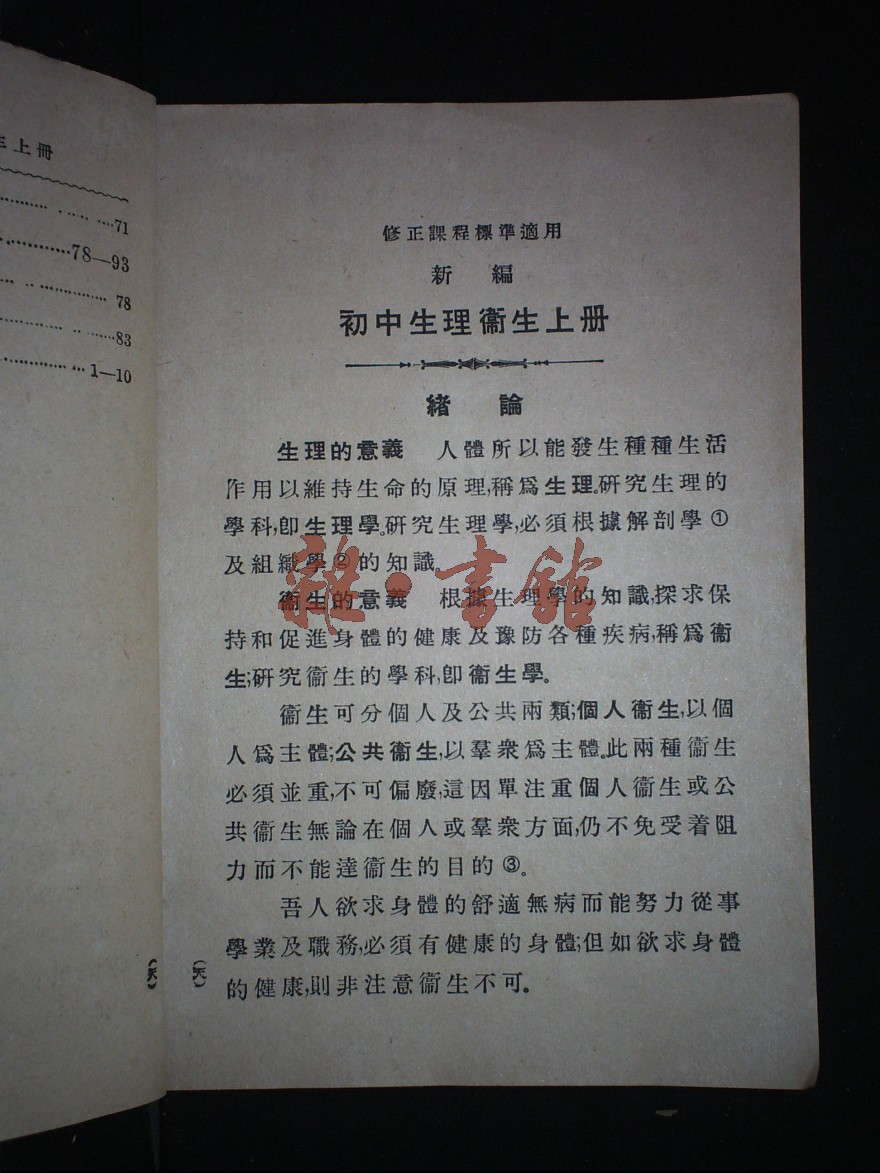 生上冊
71
78—93
78
83
1—10
修正課程標準適用
新編
初中生理衞生上册
緒論
生理的意義 人體所以能發生種種生活
作用以維持生命的原理,稱爲生理。研究生理的
學科,卽生理學。研究生理學,必須根據解剖學①
及組織學②的知識。
衞生的意義 根據生理學的知識,探求保
持和促進身體的健康及豫防各種疾病,稱爲衞
生;研究衞生的學科,卽衞生學。
衞生可分個人及公共兩類;個人衞生,以個
人爲主體;公共衞生,以羣衆爲主體。此兩種衞生
必須並重,不可偏廢,這因單注重個人衞生或公
共衞生無論在個人或羣衆方面,仍不免受着阻
力而不能達衞生的目的③。
吾人欲求身體的舒適無病而能努力從事
學業及職務,必須有健康的身體;但如欲求身體
的健康,則非注意衞生不可。
(天)
(天)
雜·書館